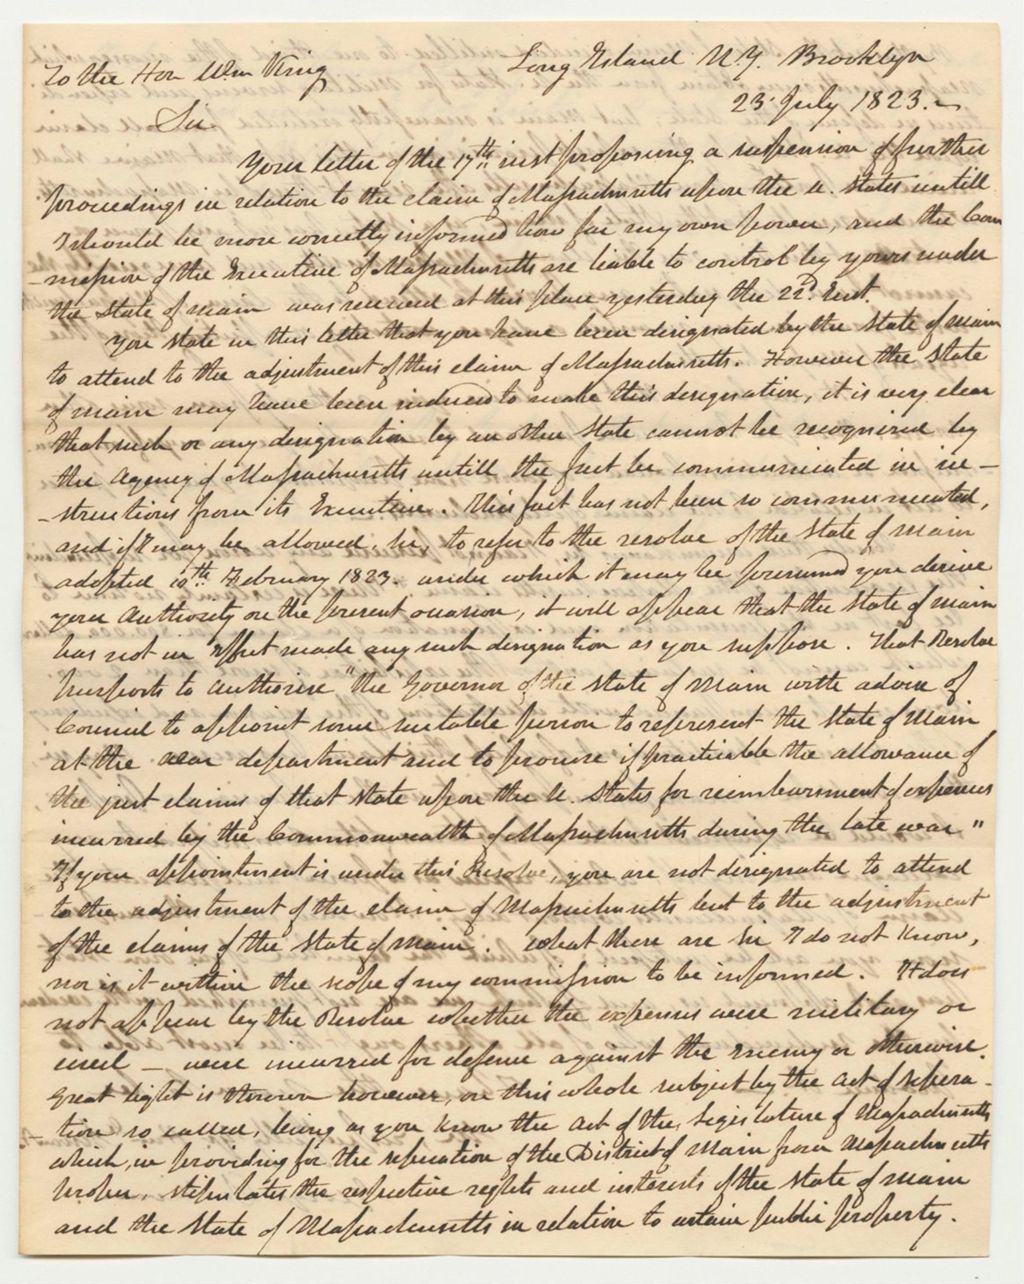 To the Hon Wm King
Long Island N.Y. Brooklyn
23 July 1823.
Sir
Your letter of the 17th inst proposing a suspension of further
proceedings in relation to the claim of Massachusetts upon the U. States untill
I should be more correctly informed how far my own power, and the Com
-mission of the Executive of Massachusetts are liable to control by yours under
the State of Main was received at this place yesterday the 22d. Inst.
You state in this letter that you have been designated by the State of Main
to attend to the adjustment of this claim of Massachusetts. However the State
of Main may have been induced to make this designation, it is very clear
that such or any designation by another State cannot be recognized by
the Agency of Massachusetts untill the fact be communicated in in-
-structions from its Executive. This fact has not been so communicated,
and if I may be allowed, Sir, to refer to the resolve of the State of Main
adopted 10th February 1823. under which it may be presumed you derive
your authority on the present occasion, it will appear that the State of Main
has not in effect made any such designation as you suppose. That Resolve
purports to authorise "the Governor of the State of Main with advice of
Council to appoint some suitable person to represent the State of Main
at the war department and to procure if practicable the allowance of
the just claims of that State upon the U. States for reimbursment of expenses
incurred by the Commonwealth of Massachusetts during the late war"
If your appointment is under this Resolve, you are not designated to attend
to the adjustment of the claim of Massachusetts but to the adjustment
of the claims of the State of Main. What these are Sir I do not know,
nor is it within the scope of my commission to be informed. It does
not appear by the Resolve whether the expenses were military or
civil - were incurred for defence against the enemy or otherwise.
Great light is thrown however, on this whole subject by the act of separa-
-tion so called, being as you know the act of the Legislature of Massachusetts
which, in providing for the separation of the District of Main from Massachusetts
proper, stipulates the respective rights and interests of the State of Main
and the State of Massachusetts in relation to certain public property.